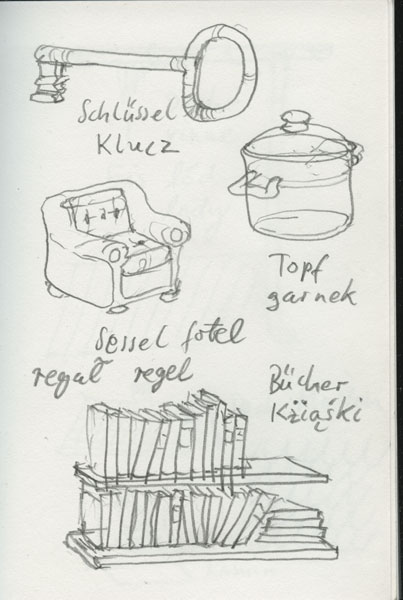 Schlüssel
Klucz
Topf
garnek
Sessel fotel
regał regel
Bücher
Książki